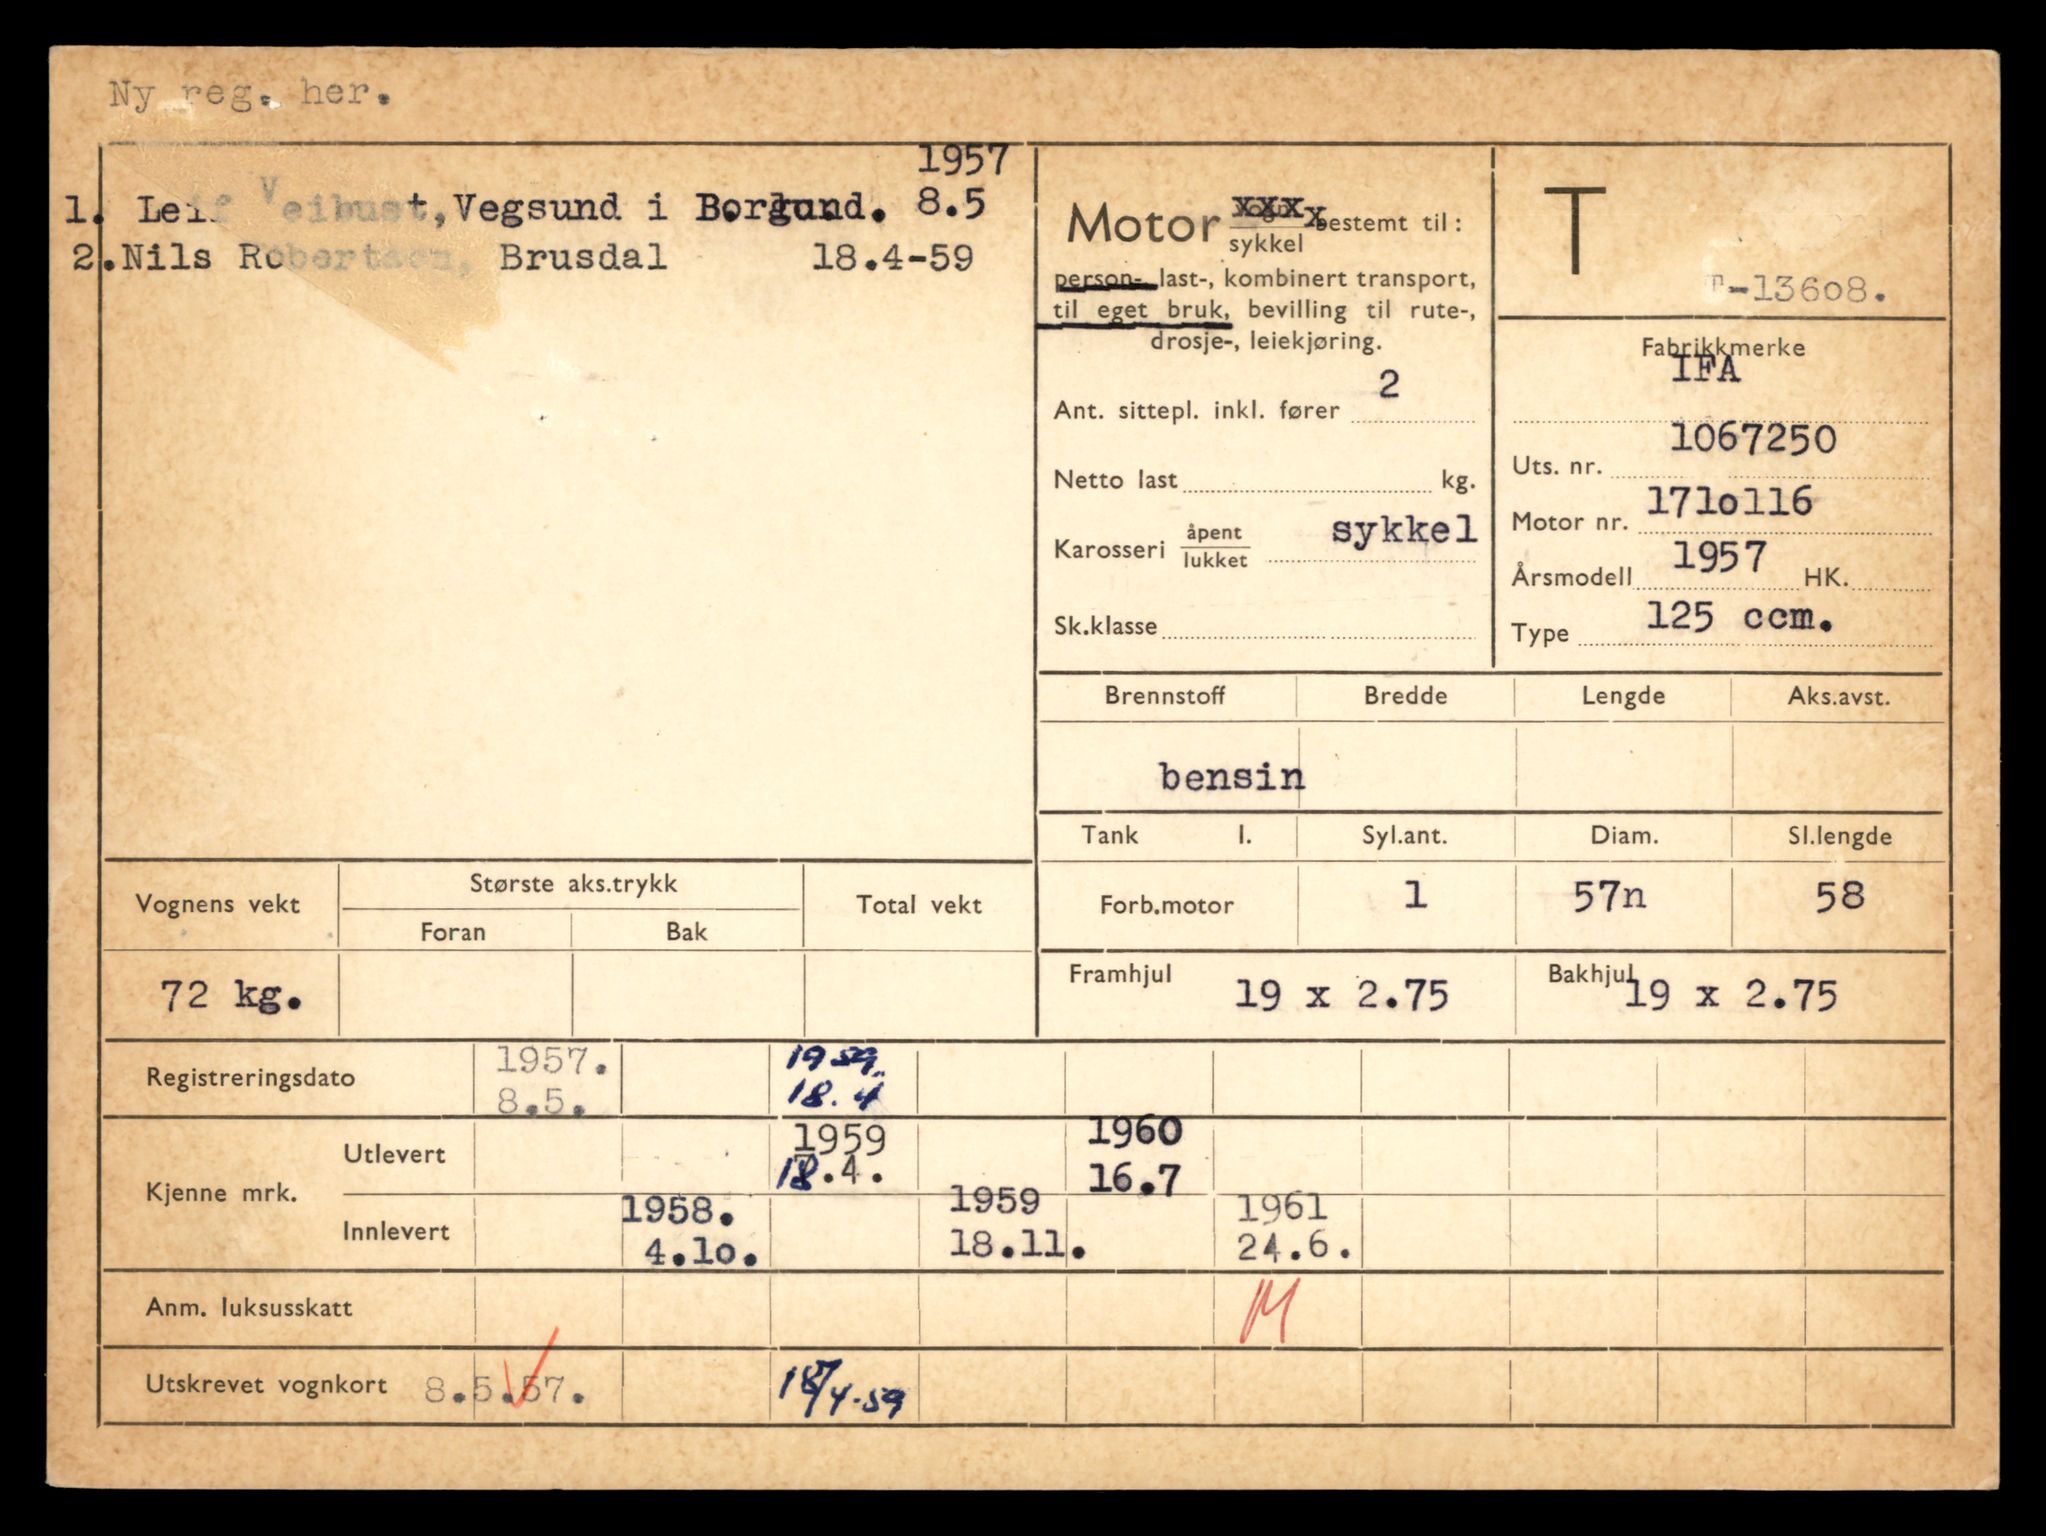 Ny reg. her.
1957
1. Leif Veibust, Vegsund i Borgund. 8.5
2. Nils Robertsen, Brusdal 18.4-59
Motor vogn
sykkel bestemt til:
person-, last-, kombinert transport,
til eget bruk, bevilling til rute-,
drosje-, leiekjøring.
Ant. sittepl. inkl. fører 2
Netto last kg.
Karosseri åpent
lukket sykkel
Sk.klasse
T
T-13608.
Fabrikkmerke
IFA
Uts. nr. 1067250
Motor nr. 1710116
Årsmodell 1957 HK.
Type 125 ccm.
Brennstoff Bredde Lengde Aks.avst.
bensin
Tank l. Syl.ant. Diam. Sl.lengde
Forb.motor 1 57n 58
Framhjul 19 x 2.75 Bakhjul 19 x 2.75
Vognens vekt Største aks.trykk Total vekt
Foran Bak
72 kg.
Registreringsdato 1957. 1959.
8.5. 18.4
Kjenne mrk. Utlevert 1959 1960
18.4. 16.7
Innlevert 1958. 1959 1961
4.10. 18.11. 24.6.
Anm. luksusskatt M
Utskrevet vognkort 8.5.57. 18/4-59